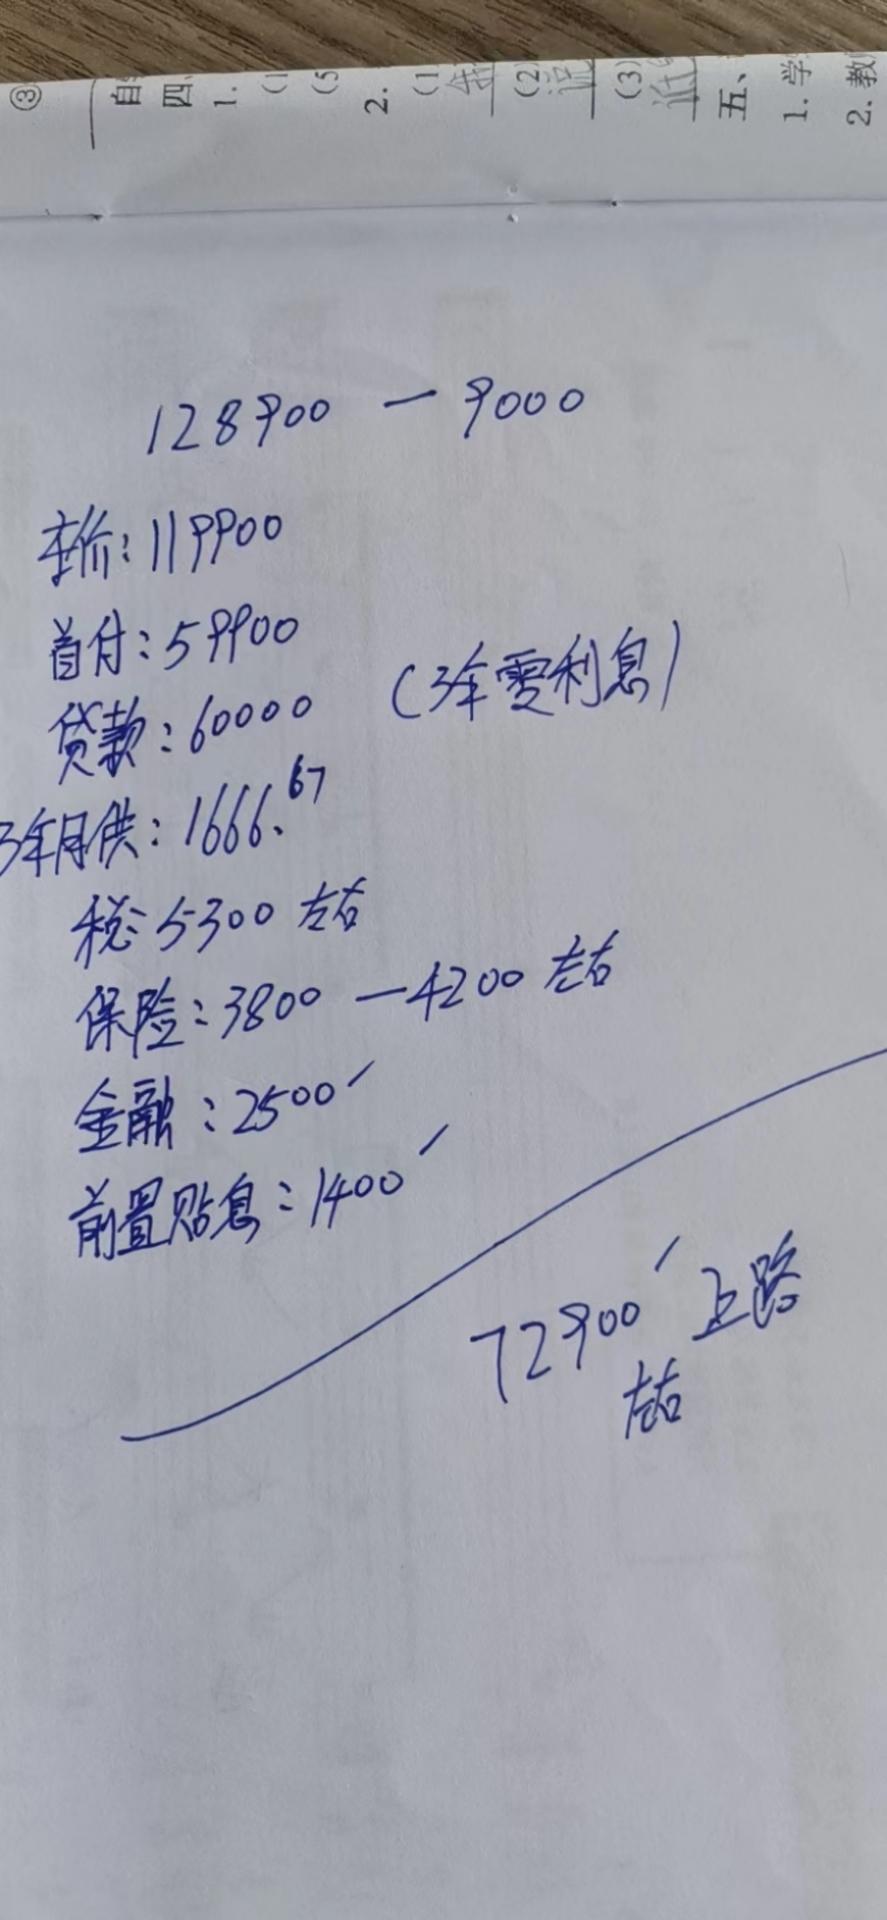 ③
自
四、
1.
(1
(5
2.
(1
(2)
(3)
五、
1. 学
2. 教
128900 — 9000
车价：119900
首付：59900
贷款：60000 （3年零利息）
3年月供：1666.67
税：5300 左右
保险：3800 — 4200 左右
金融：2500
前置贴息：1400
72900 上路
左右